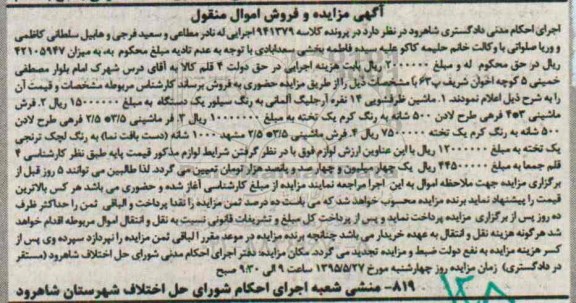 آگهی مزایده و فروش اموال منقول
اجرای احکام مدنی دادگستری شاهرود در نظر دارد در پرونده کلاسه ۹۴۱۳۷۹ اجرایی له نادر مطاعی و سعید فرجی و هابیل سلطانی کاظمی
و وریا صلواتی با وکالت خانم حلیمه کاکو علیه سیده فاطمه بخشی سعدابادی با توجه به عدم تادیه مبلغ محکوم به، به میزان ۴۲۱۰۵۹۴۷
ریال در حق محکوم له و مبلغ ۲۰۰۰۰۰۰ ریال بابت هزینه اجرایی در حق دولت ۴ قلم کالا به آقای درس شهرک امام بلوار مصطفی
خمینی ۵ کوچه اخوان شریف پ۶۳ با مشخصات ذیل را از طریق مزایده حضوری به فروش برساند کارشناس مربوطه مشخصات و قیمت آن
را به شرح ذیل اعلام نمودند. ۱. ماشین ظرفشویی ۱۴ نفره آ.رجلیک آلمانی به رنگ سیلور یک دستگاه به مبلغ ۱۵۰۰۰۰۰۰ ریال ۲. فرش
ماشینی ۳*۴ فرهی طرح لادن ۵۰۰ شانه به رنگ کرم یک تخته به مبلغ ۱۰۰۰۰۰۰۰ ریال ۳. فر ماشینی ۳/۵* ۲/۵ فرهی طرح لادن
۵۰۰ شانه به رنگ کرم یک تخته ۷۵۰۰۰۰۰ ریال ۴. فرش ماشینی ۳/۵* ۲/۵ مشهد ۱۰۰۰ شانه (دست بافت نما) به رنگ لجک ترنجی
یک تخته به مبلغ ۱۲۰۰۰۰۰۰ ریال با این عناوین ارزش لوازم فوق با در نظر گرفتن شرایط لوازم مذکور قیمت پایه طبق نظر کارشناسی ۴
قلم جمعا به مبلغ ۴۴۵۰۰۰۰۰ ریال یک چهار میلیون و چهارصد و پانصد هزار تومان تعیین می گردد. لذا طالبین می توانند ۵ روز قبل از
برگزاری مزایده جهت ملاحظه اموال به این اجرا مراجعه نمایند مزایده از مبلغ کارشناسی آغاز شده و حضوری می باشد هر کس بالاترین
قیمت را پیشنهاد نماید برنده مزایده محسوب خواهد شد که می باست ده درصد ثمن مزایده را نقدا پرداخت و الباقی ثمن را حداکثر ظرف
ده روز پس از برگزاری مزایده پرداخت نماید و پس از پرداخت کل مبلغ و تشریفات قانونی نسبت به نقل و انتقال اموال مربوطه اقدام خواهد
شد هر گونه هزینه نقل و انتقال به عهده خریدار می باشد چنانچه برنده مزایده در موعد مقرر الباقی ثمن مزایده را نپردازد سپرده وی پس از
کسر هزینه مزایده به نفع دولت ضبط و مزایده تجدید می گردد. مکان مزایده: دفتر اجرای احکام مدنی شورای حل اختلاف شاهرود (مستقر
در دادگستری) زمان مزایده روز چهارشنبه مورخ ۱۳۹۵/۵/۲۷ ساعت ۹ الی ۹:۳۰ صبح
۸۱۹- منشی شعبه اجرای احکام شورای حل اختلاف شهرستان شاهرود